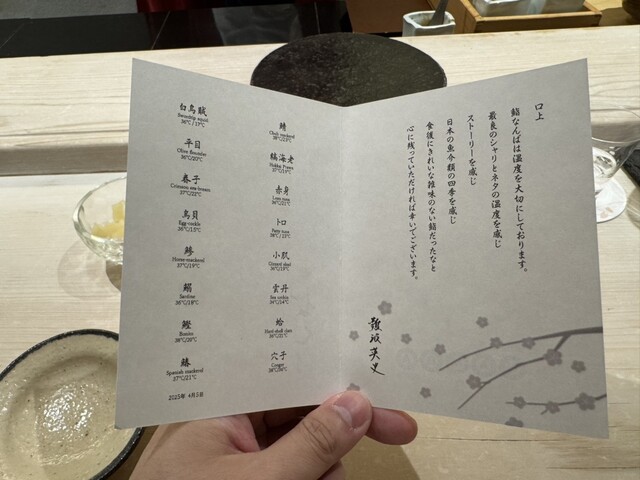 白烏賊
Swordtip squid
36℃/19℃
平目
Olive flounder
36℃/20℃
春子
Crimson sea-bream
37℃/22℃
鳥貝
Egg cockle
36℃/15℃
鯵
Horse mackerel
37℃/19℃
鰯
Sardine
36℃/18℃
鰹
Bonito
38℃/20℃
鰆
Spanish mackerel
37℃/21℃
2025年 4月5日
鯖
Chub mackerel
38℃/23℃
縞海老
赤身
トロ
小肌
Gizzard shad
36℃/18℃
雲丹
Sea urchin
34℃/14℃
蛤
Hard shell clam
穴子
Conger
口上
鮨なんばは温度を大切にしております。
最良のシャリとネタの温度を感じ
ストーリーを感じ
日本の魚介類の四季を感じ
食後にきれいな雑味のない鮨だったなと
心に残っていただければ幸いでございます。
難波英史